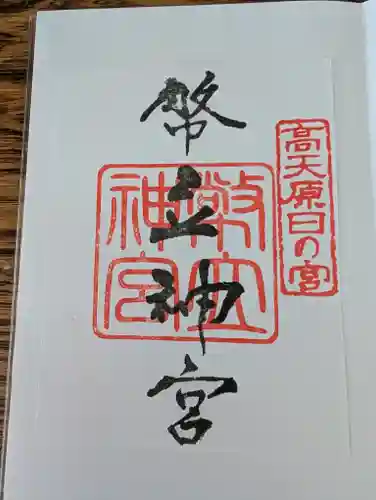 高天原日の宮
幣立神宮
幣立神宮